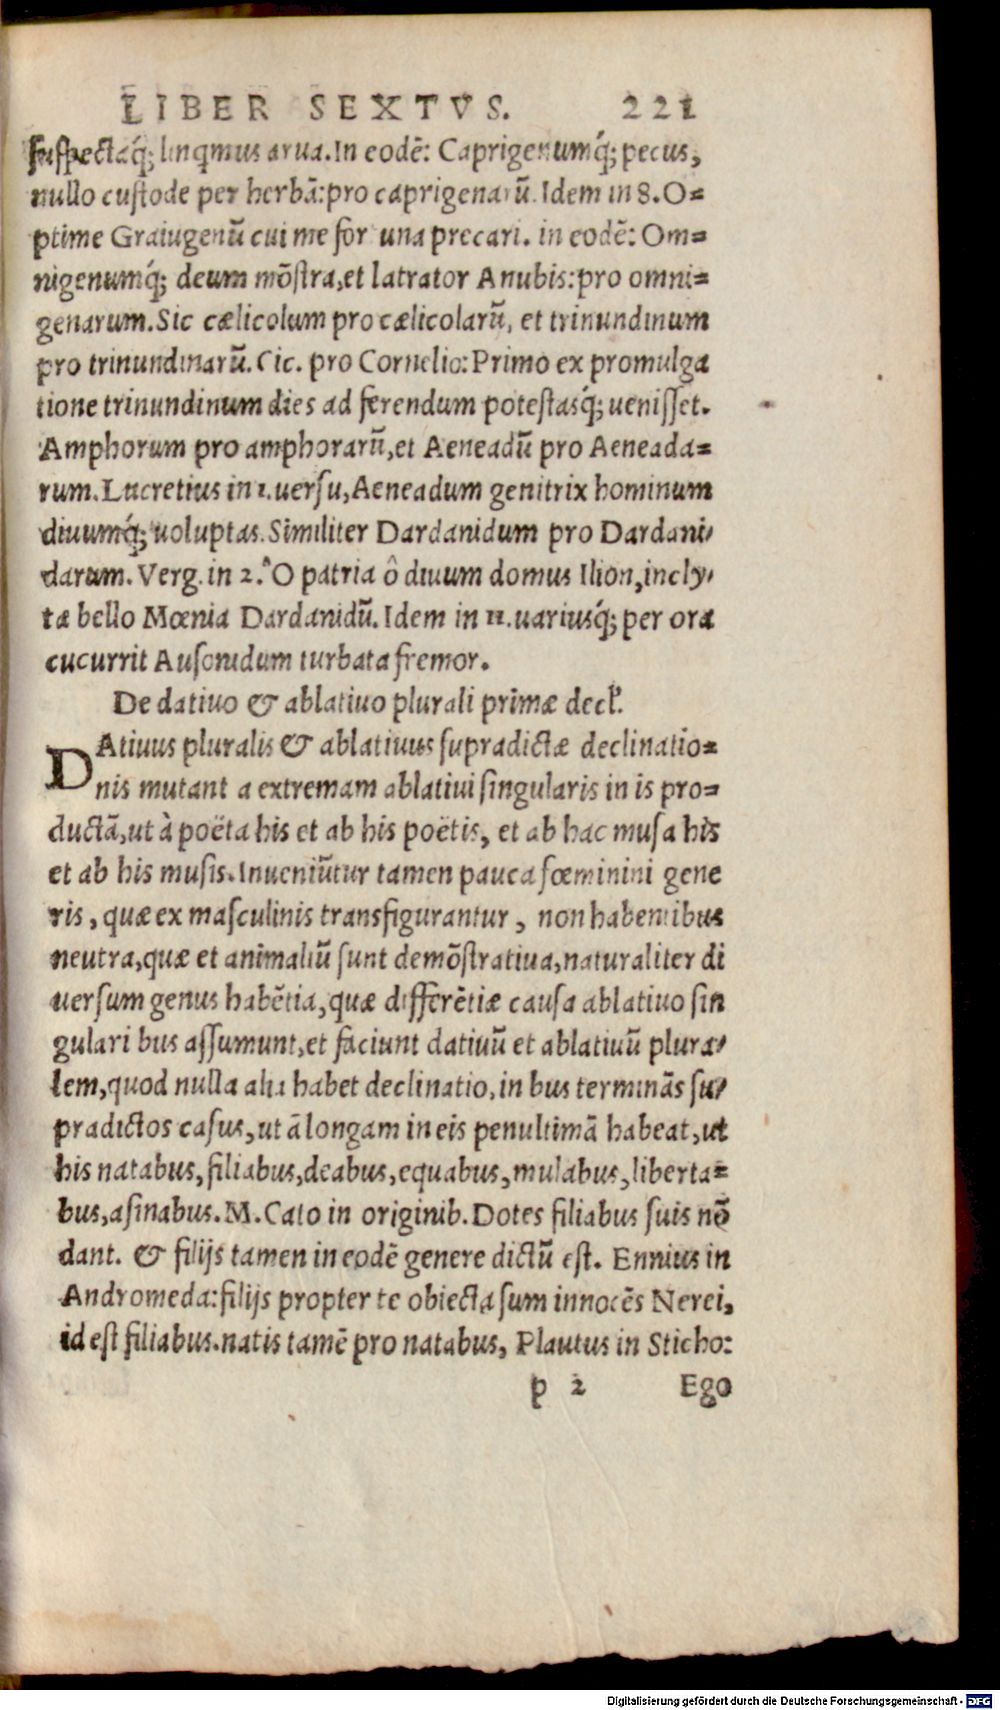 LIBER SEXTVS. 221
suspectaq́; linqmus arua. In eodē: Caprigenumq́; pecus,
nullo custode per herbā: pro caprigenarū. Idem in 8. O=
ptime Graiugenū cui me for una precari. in eodē: Om=
nigenumq́; deum mōstra, et latrator Anubis: pro omni=
genarum. Sic cælicolum pro cælicolarū, et trinundinum
pro trinundinarū. Cic. pro Cornelio: Primo ex promulga
tione trinundinum dies ad ferendum potestasq́; uenisset.
Amphorum pro amphorarū, et Aeneadū pro Aeneada=
rum. Lucretius in 1. uersu, Aeneadum genitrix hominum
diuumq́; uoluptas. Similiter Dardanidum pro Dardani,
darum. Verg. in 2. O patria ô diuum domus Ilion, incly,
tæ bello Mœnia Dardanidū. Idem in 11. uariusq́; per ora
cucurrit Ausonidum turbata fremor.
De datiuo & ablatiuo plurali primæ decl.
DAtiuus pluralis & ablatiuus supradictæ declinatio=
nis mutant a extremam ablatiui singularis in is pro=
ductā, ut à poëta his et ab his poëtis, et ab hac musa his
et ab his musis. Inueniūtur tamen pauca fœminini gene
ris, quæ ex masculinis transfigurantur, non habentibus
neutra, quæ et animaliū sunt demōstratiua, naturaliter di
uersum genus habētia, quæ differētiæ causa ablatiuo sin
gulari bus assumunt, et faciunt datiuū et ablatiuū plura,
lem, quod nulla alia habet declinatio, in bus terminās su,
pradictos casus, ut ā longam in eis penultimā habeat, ut
his natabus, filiabus, deabus, equabus, mulabus, liberta=
bus, asinabus. M. Cato in originib. Dotes filiabus suis nō
dant. & filijs tamen in eodē genere dictū est. Ennius in
Andromeda: filijs propter te obiecta sum innocēs Nerei,
id est filiabus. natis tamē pro natabus, Plautus in Sticho:
p 2 Ego
Digitalisierung gefördert durch die Deutsche Forschungsgemeinschaft - DFG